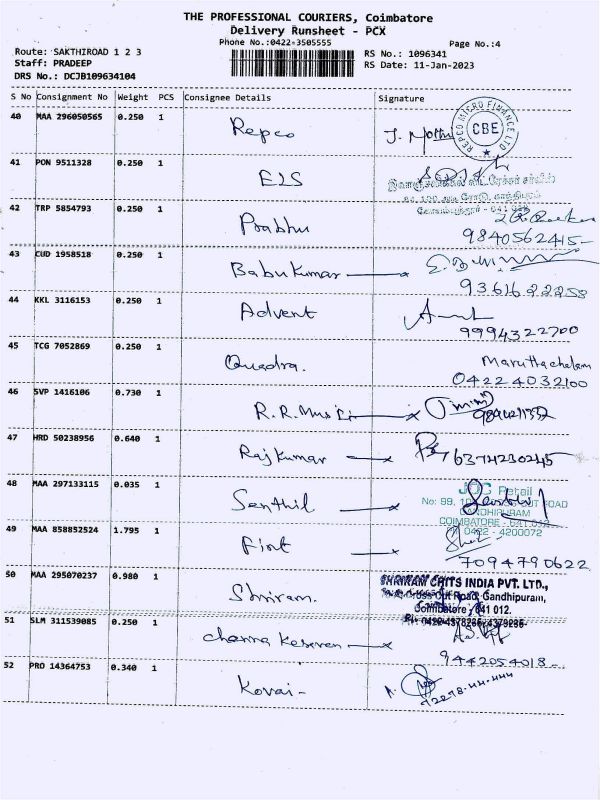 THE PROFESSIONAL COURIERS, Coimbatore
Delivery Runsheet - PCX
Phone No.:0422-3505555
Page No.:4
Route: SAKTHIROAD 1 2 3
RS No.: 1096341
Staff: PRADEEP
RS Date: 11-Jan-2023
DRS No.: DCJB109634104
S No Consignment No Weight PCS Consignee Details Signature
40 MAA 296050565 0.250 1 Repco J. REPCO MICRO FINANCE LTD CBE
41 PON 9511328 0.250 1 EIS
42 TRP 5854793 0.250 1 Prabhu 9840562415
43 CUD 1958518 0.250 1 Babukumar
44 KKL 3116153 0.250 1 Advent 9994322700
45 TCG 7052869 0.250 1 Quadra. Maruthachalam
04224032100
46 SVP 1416106 0.730 1 R.R.
47 HRD 50238956 0.640 1 Rajkumar 6374230245
48 MAA 297133115 0.035 1 Senthil Retail
No: 99, ROAD
GANDHIPURAM
COIMBATORE - 641 012
0422 - 4200072
49 MAA 858852524 1.795 1 First
7094790622
50 MAA 295070237 0.980 1 Shriram. SHRIRAM CHITS INDIA PVT. LTD.,
Cross Cut Road, Gandhipuram,
Coimbatore, 641 012.
51 SLM 311539085 0.250 1 9442054018
52 PRO 14364753 0.340 1 Kovai- 72278-44-444